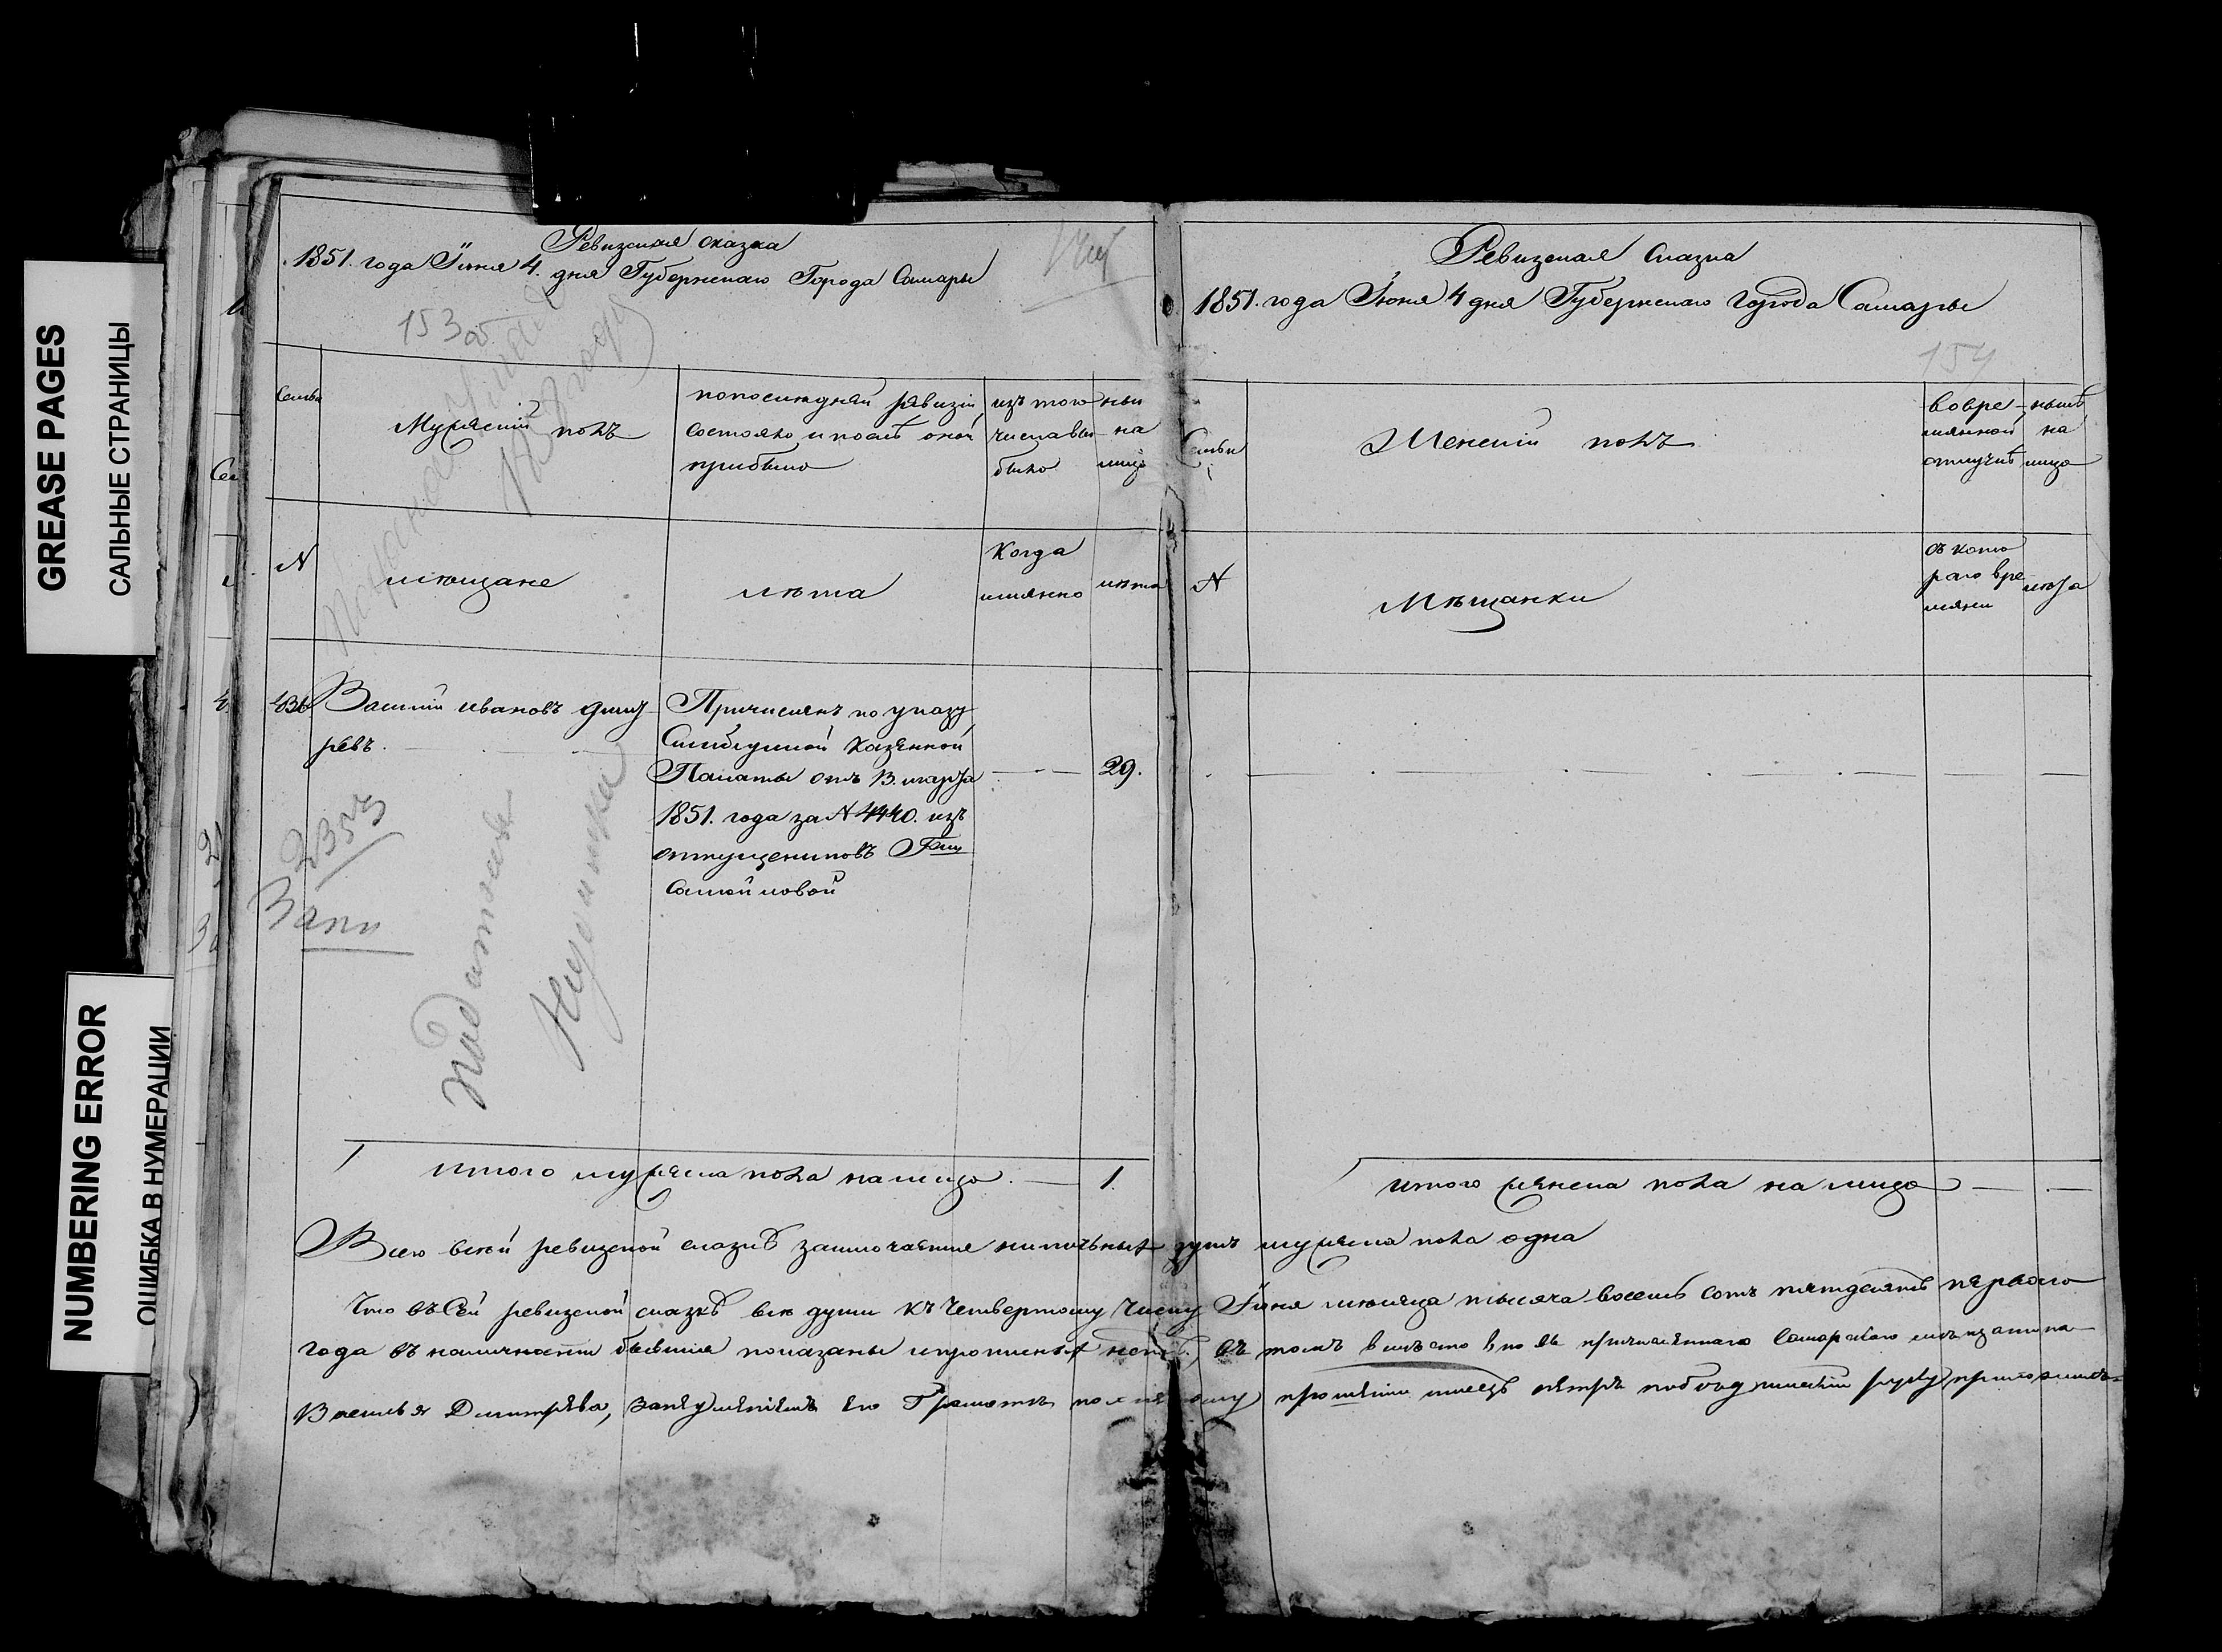 GREASE PAGES
САЛЬНЫЕ СТРАНИЦЫ
NUMBERING ERROR
ОШИБКА В НУМЕРАЦИИ
Ревизская сказка
1851. года Іюня 4. дня Губернскаго Города Самары
153 об
Семьи
Мужескій полъ
по последней ревизіи
состояло и послѣ оной
прибыло
изъ того
числа вы
было
ныне
на
лицо
N
мѣщане
лѣта
Когда
имянно
лѣта
436
Василій Ивановъ Дмит
ревъ.
Причисленъ по указу
Симбирской Казенной
Палаты отъ 13. марта
1851. года за N 4440. изъ
отпущениковъ Гжи
Самойловой
29.
2353
Итого мужеска пола на лицо. — 1.
Ревизская Сказка
1851. года Іюня 4 дня Губернскаго Города Самары
154
Семьи
Женскій полъ
во вре
мянной
отлучкѣ
нынѣ
на
лицо
N
Мѣщанки
съ кото
раго вре
мяни
лѣта
Итого женска пола на лицо
Всего в сей ревизской сказкѣ заключается наличныхъ душъ мужеска пола одна
Что въ Сей ревизской сказкѣ всѣ души къ Четвертому числу Іюня месяца тысяча восемь сотъ пятдесятъ перваго
года въ наличности бывшия показаны и прописныхъ нетъ, въ томъ вместо вновь причисленнаго Самарскаго мещанина
Василья Дмитрева, за неумениемъ его Грамоте по личному прошению руку приложилъ